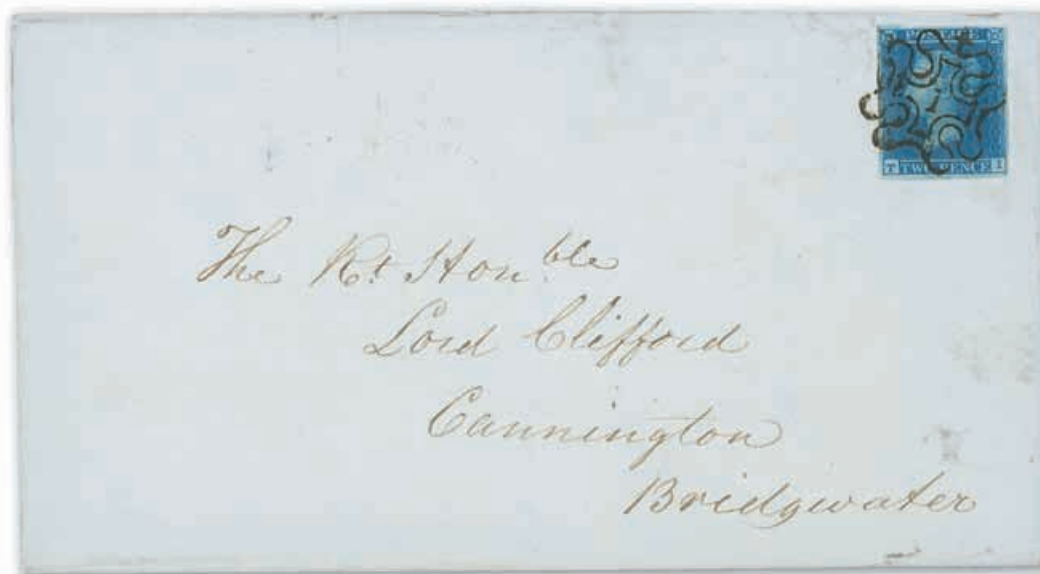 POSTAGE
1
T TWO PENCE I
The Rt. Honble
Lord Clifford
Cannington
Bridgwater